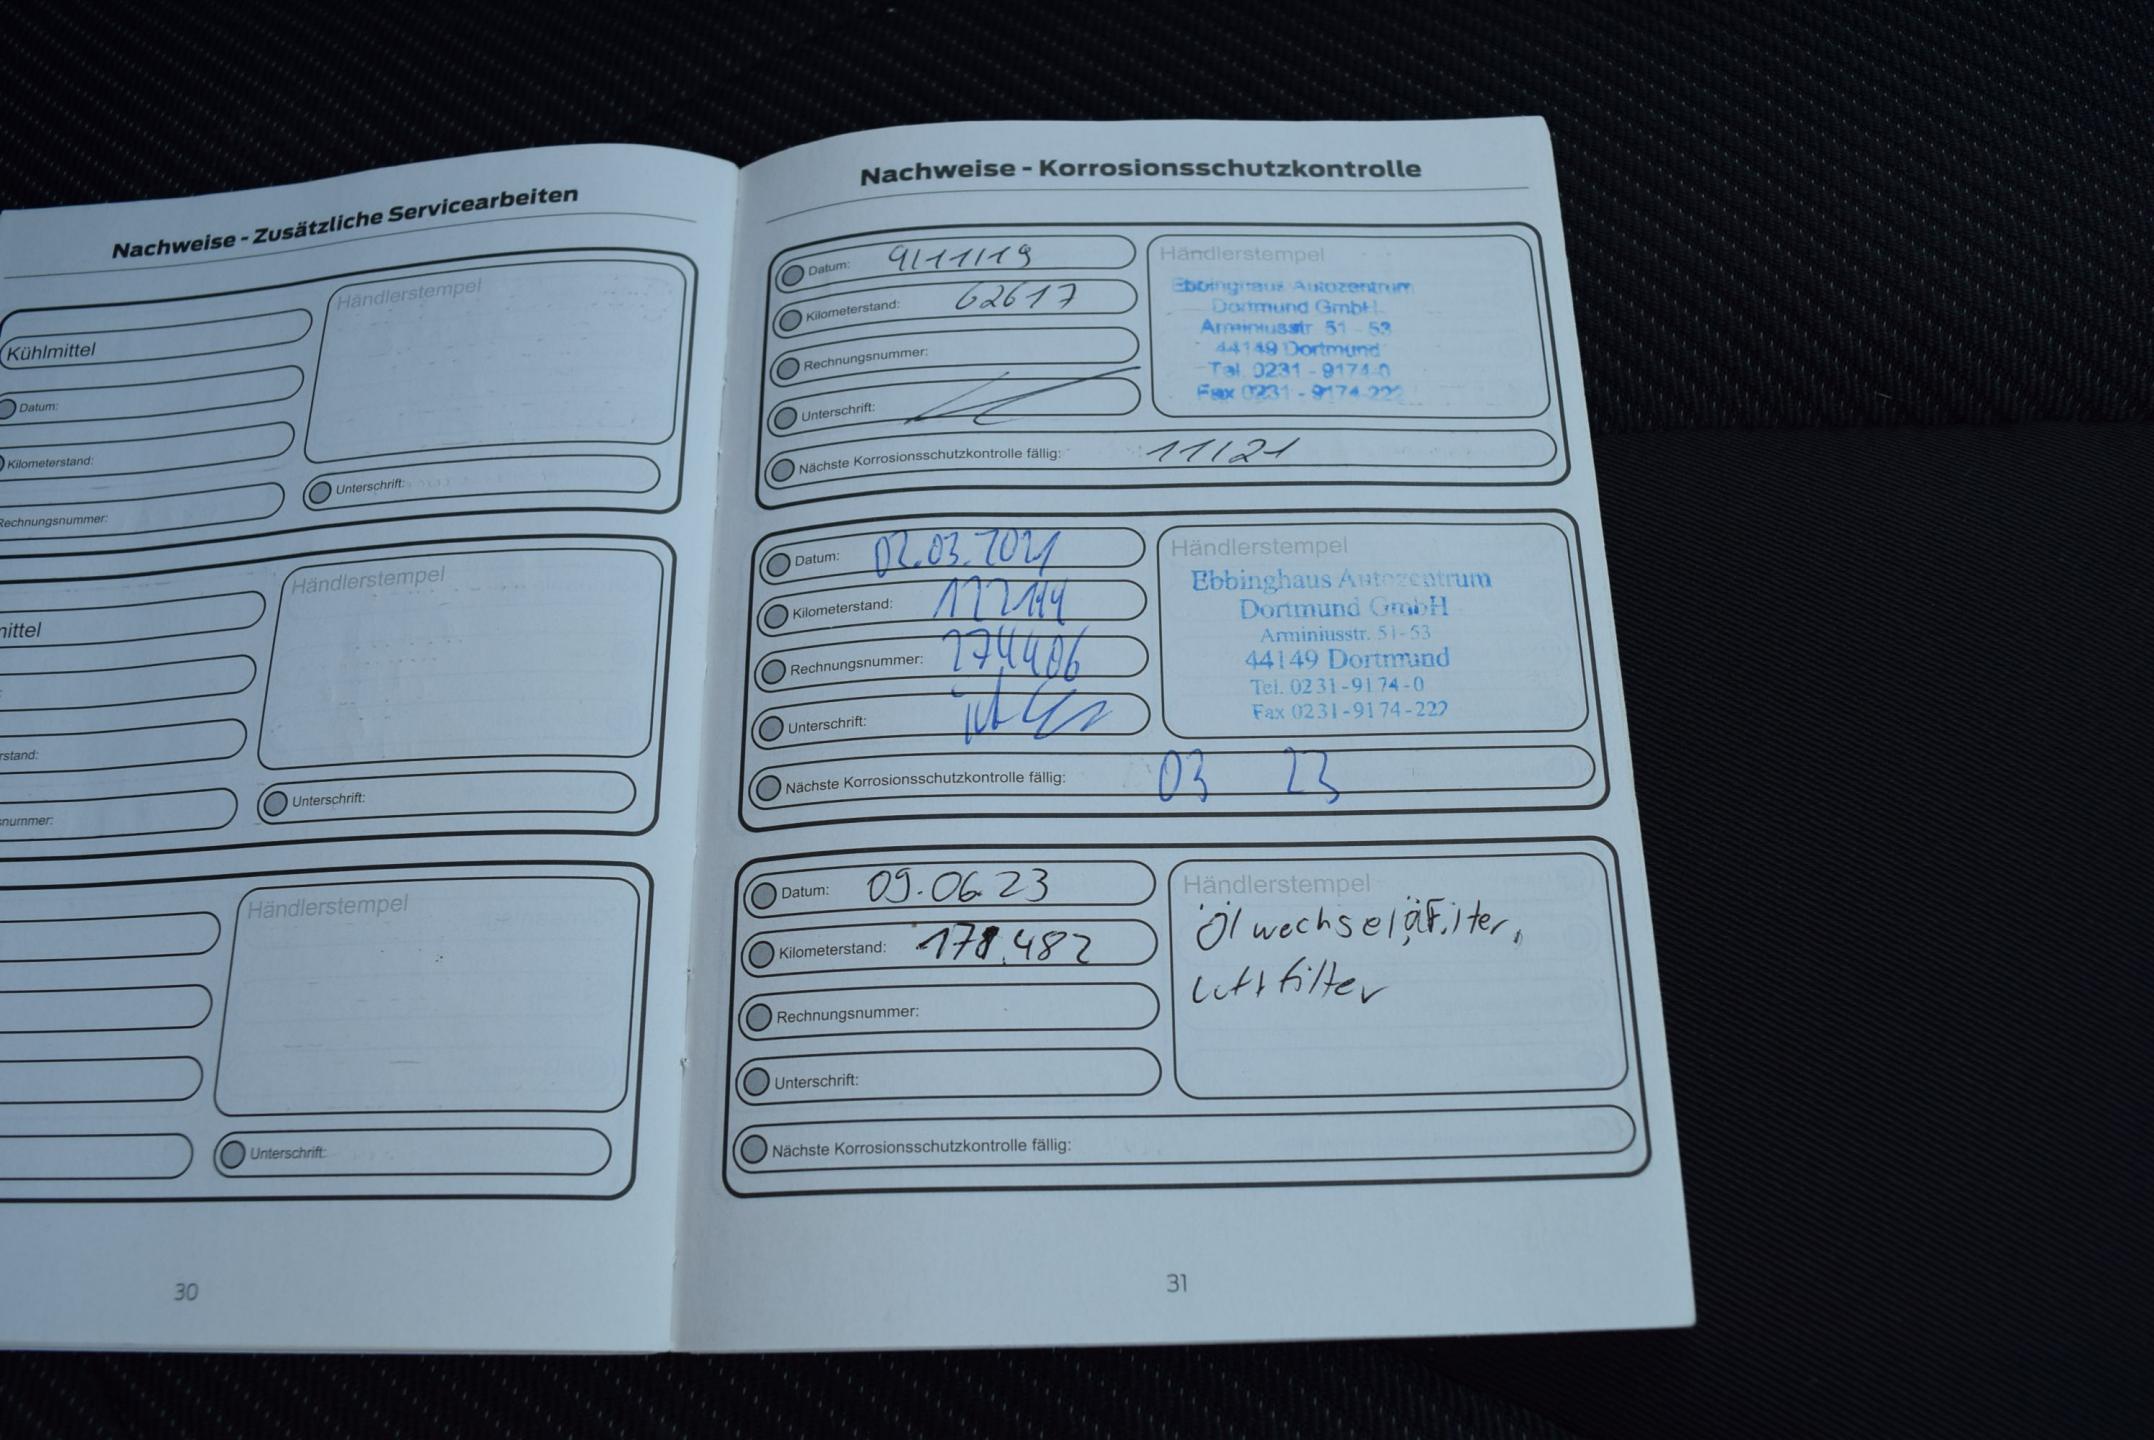 Nachweise - Zusätzliche Servicearbeiten
Händlerstempel
Kühlmittel
Datum:
Kilometerstand:
Rechnungsnummer:
Unterschrift:
Händlerstempel
mittel
:
rstand:
snummer:
Unterschrift:
Händlerstempel
Unterschrift:
30
Nachweise - Korrosionsschutzkontrolle
Datum: 9/11/19
Kilometerstand: 62617
Rechnungsnummer:
Unterschrift:
Nächste Korrosionsschutzkontrolle fällig: 11/21
Händlerstempel
Ebbinghaus Autozentrum
Dortmund GmbH
Arminiusstr. 51 - 53
44149 Dortmund
Tel. 0231 - 9174-0
Fax 0231 - 9174-222
Datum: 02.03.2021
Kilometerstand:
Rechnungsnummer: 274406
Unterschrift:
Nächste Korrosionsschutzkontrolle fällig: 03 23
Händlerstempel
Ebbinghaus Autozentrum
Dortmund GmbH
Arminiusstr. 51-53
44149 Dortmund
Tel. 0231-9174-0
Fax 0231-9174-222
Datum: 09.06.23
Kilometerstand: 171.482
Rechnungsnummer:
Unterschrift:
Nächste Korrosionsschutzkontrolle fällig:
Händlerstempel
Ölwechsel,
Luftfilter
31